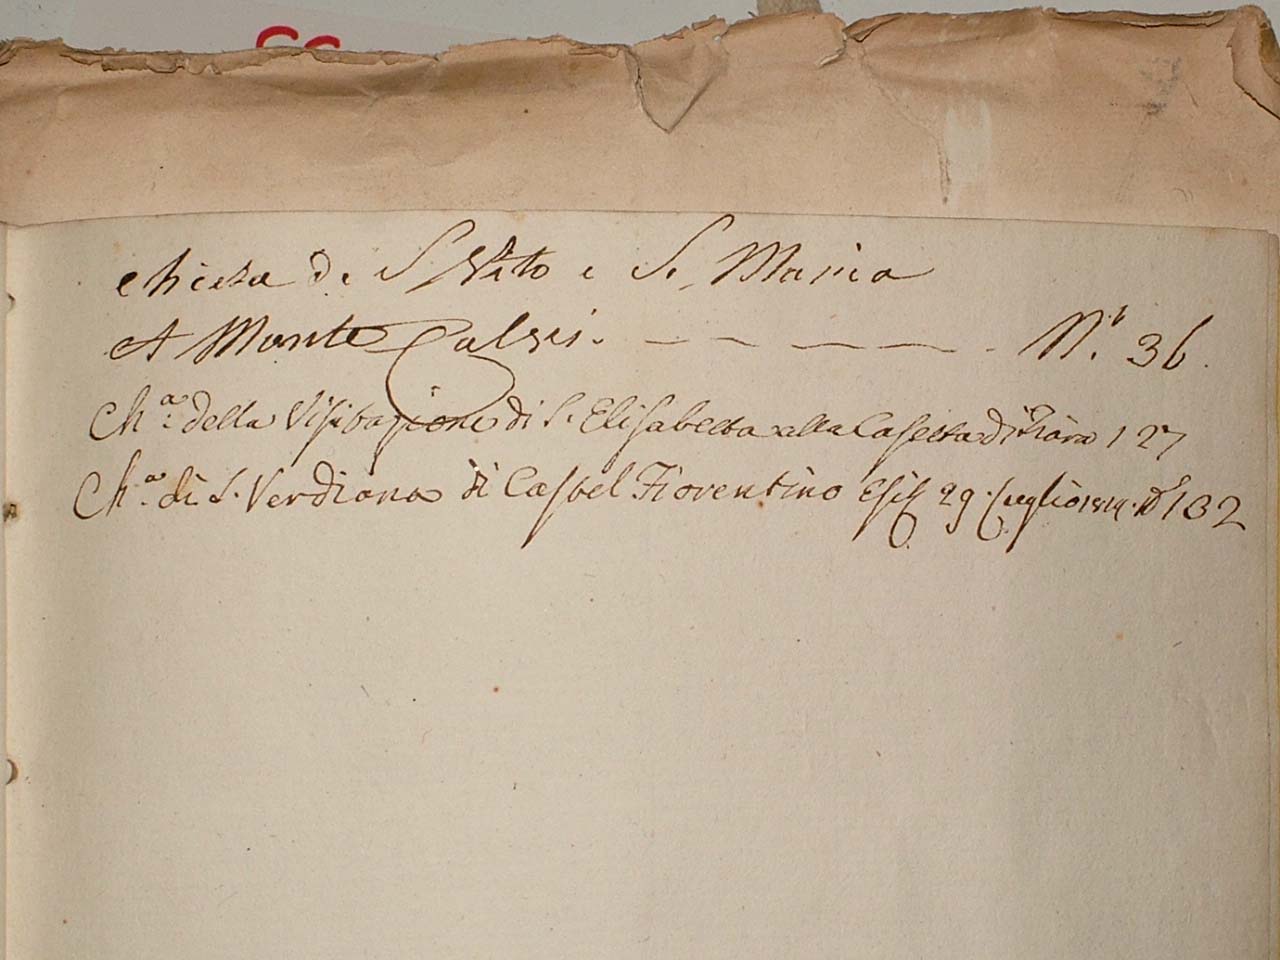 Chiesa di S. Vito e S. Maria
A Monte Calvi. N.° 36.
Ch.ª della Visitazione di S. Elisabetta alla Casetta di 127
Ch.ª di S. Verdiana di Castel Fiorentino Esig 29. Luglio 1819. 132